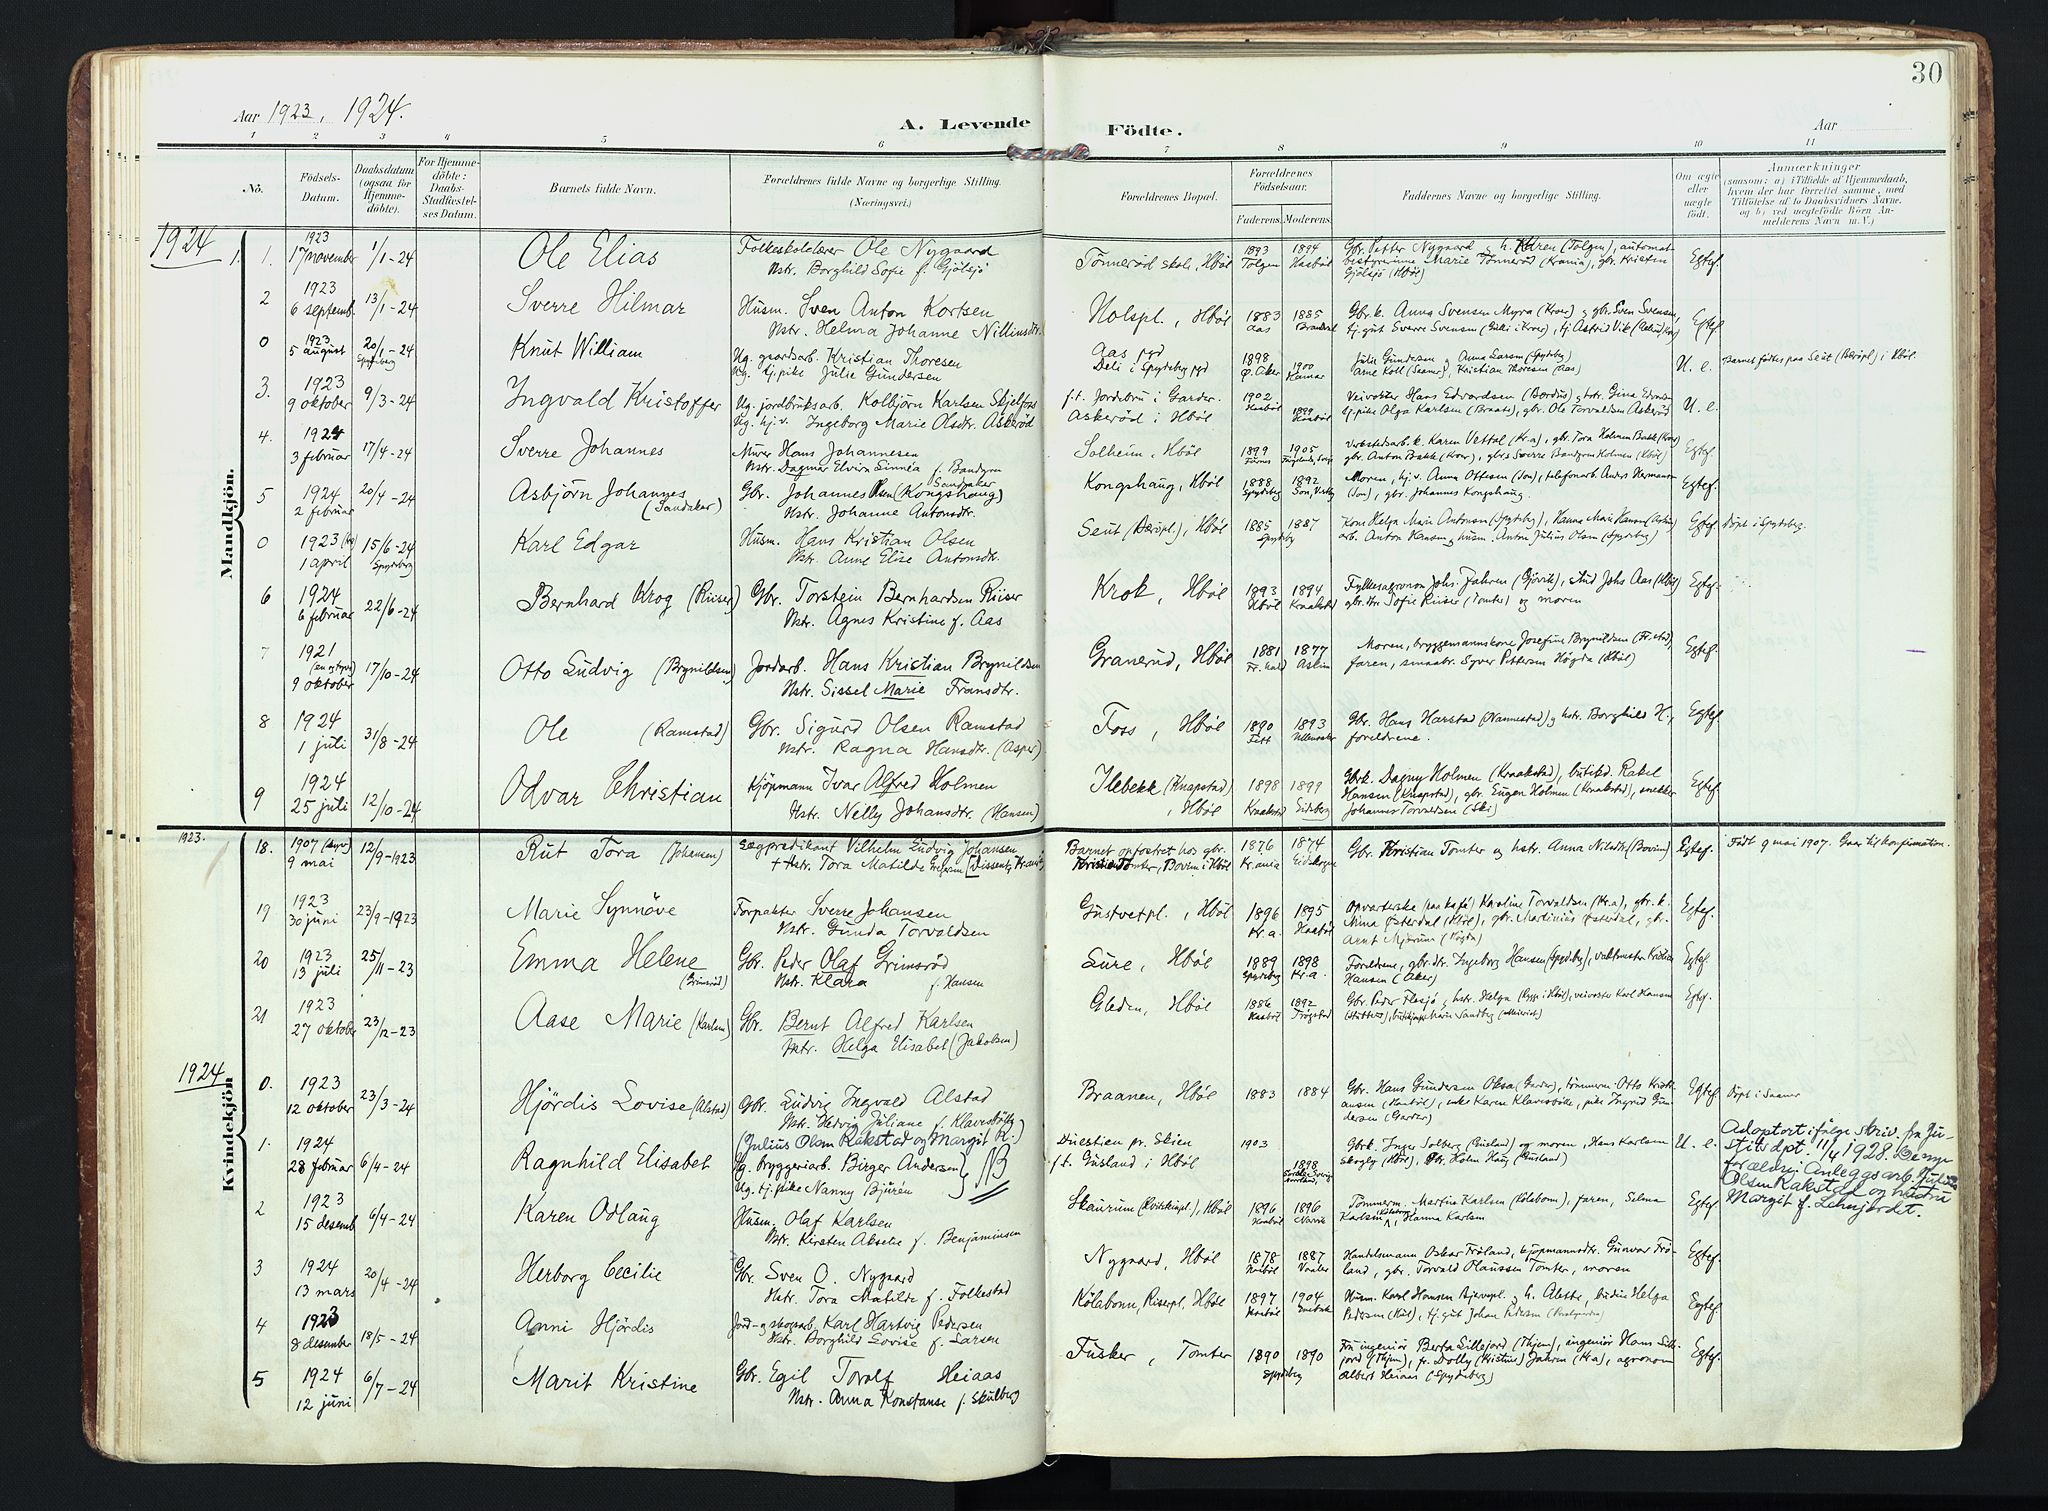 30
Aar 1923, 1924.
A. Levende Födte.
Aar
1 2 3 4 5 6 7 8 9 10 11
No.
Födsels-Datum.
Daabsdatum (ogsaa for Hjemme-döbte).
For Hjemme-döbte: Daabs-Stadfæstelses Datum.
Barnets fulde Navn.
Forældrenes fulde Navne og borgerlige Stilling. (Næringsvei.)
Forældrenes Bopæl.
Forældrenes Födselsaar.
Faderens. Moderens.
Faddernes Navne og borgerlige Stilling.
Om ægte eller uægte födt.
Anmærkninger
(saasom: a) i Tilfælde af Hjemmedaab, hvem der har forrettet samme, med Tilföielse af to Daabsvidners Navne, og b) ved uægtefödte Börn Anmelderens Navn m. V.)
1924
Mandkjön.
1. 1923 17 november 1/1-24 Ole Elias
Folkeskolelærer Ole Nygaard
Hstr. Borghild Sofie f. Gjölsjö
Tönneröd skole, Hböl 1893 Tolgen 1894 Haaböl
Gbr. Petter Nygaard og h. Karen (Tolgen), automat-
bestyrerinne Marie Tönneröd (Krania), gbr. Kristen
Gjölsjö (Hböl) Egtef.
2 1923 6 septemb. 13/1-24 Sverre Hilmar
Husm. Sven Anton Kortsen
Hstr. Helma Johanne Nillinsdtr.
Holspl., Hböl 1883 Aas 1885
Gbr.k. Anna Svensen Myra (Kroer) og gbr. Sven Svensen,
tj.gut Sverre Svensen, tj. Astrid Vik Egtef
0 1923 5 august 20/1-24 Spydeberg Knut William
Ug. gaardsarb. Kristian Thoresen
Ug. tj.pike Julie Gundersen
Aas pgd
Deli i Spydebg pgd 1898 Ø. Aker 1900 Hamar
Julie Gundersen og Anna Larsen (Spydebg)
Arne Koll, Kristian Thoresen (Aas) U. e. Barnet födtes paa Seut (Bæröpl) i Hböl.
3. 1923 9 oktober 9/3-24 Ingvald Kristoffer
Ug. jordbruksarb. Kolbjörn Karlsen Skjelfoss
Ug. hj.v. Ingeborg Marie Olsdtr. Asköröd
f.t. Jordebru i Garder.
Askeröd i Hböl 1902 Haaböl 1899 Haaböl
Veivokter Hans Edvardsen (Bordus) og hstr. Gina
tj.pike Olga Karlsen (Braate), gbr. Ole Torvaldsen Askeröd U. e.
4. 1924 3 februar 17/4-24 Sverre Johannes
Murer Hans Johannesen
Hstr. Dagmar Elvira Sinnéa f. Bandgren
Solheim, Hböl 1899 1905
Verkstedsarb.k. Karen Vettal (Kr.a), gbr. Tora Holmen Bakk (Kroer)
gbr. Anton Bakke (Kroer), gbr.s Sverre Bandgren Holmen (Hböl) Egtef.
5 1924 2 februar 20/4-24 Asbjörn Johannes (Sandaker)
Gbr. Johannes Olsen Sandaker (Kongshaug)
Hstr. Johanne Antonsdtr.
Kongshaug, Hböl 1888 Spydebg 1892 Son, Vestby
Moren, hj.v. Anna Ottesen (Son), telefonarb. Anders Hermansen
(Son), gbr. Johannes Kongshaug. Egtef.
0 1923 1 april 15/6-24 Spydeberg Karl Edgar
Husm. Hans Kristian Olsen
Hstr. Anne Elise Antonsdtr.
Seut (Bæröpl.), Hböl 1885 1887 Spydeberg
Kone Helga Marie Antonsen (Spydebg), Hanna Marie Hansen (Askim)
arb. Anton Hansen og husm. Anton Julius Olsen (Spydebg) Egtef Döpt i Spydeberg.
6 1924 6 februar 22/6-24 Bernhard Krog (Riiser)
Gbr. Torstein Bernhardsen Riiser
Hstr. Agnes Kristine f. Aas
Krok, Hböl 1893 Hböl 1894 Kraakstad
Fylkesagronom Johs. Jahren (Gjövik), stud Johs Aas (Hböl)
gbr.dtr. Sofie Riiser (Tomter) og moren Egtef.
7 1921 (en og tyve) 9 oktober 17/10-24 Otto Ludvig (Brynildsen)
Jordarb. Hans Kristian Brynildsen
Hstr. Sissel Marie Fransdtr.
Granerud, Hböl 1881 Fr.hald 1877 Askim
Moren, bryggemannskone Josefine Brynildsen (Fr.stad),
faren, smaabr. Syver Pettersen Högda (Hböl) Egtef.
8 1924 1 juli 31/8-24 Ole (Ramstad)
Gbr. Sigurd Olsen Ramstad
Hstr. Ragna Hansdtr. (Asper)
Foss, Hböl 1890 Fett 1893 Ullensaker
Gbr. Hans Harstad (Nannestad) og hstr. Borghild H.,
foreldrene. Egtef.
9 1924 25 juli 12/10-24 Odvar Christian
Kjöpmann Ivar Alfred Holmen
Hstr. Nelly Johansdtr. (Hansen)
Ilebekk (Knapstad), Hböl 1898 Kraakstad 1899 Eidsberg
Gbrk. Dagny Holmen (Kraakstad), butikd. Rakel
Hansen (Knapstad), gbr. Eugen Holmen (Kraakstad), snekker
Johannes Torvaldsen (Ski) Egtef.
1923.
1924
Kvindekjön
18. 1907 (syv) 9 mai 12/9-1923 Rut Tora (Johansen)
Lægpredikant Vilhelm Ludvig Johansen
+ hstr. Tora Matilde (Dissent, Krania)
Barnet opfostret hos gbr.
Kristian Tomter, Bovim i Hböl 1876 Kr.ania 1874
Gbr. Kristian Tomter og hstr. Anna Nilsdtr (Bovim) Egtef. Födt 9 mai 1907. Gaar til konfirmation.
19 1923 30 juni 23/9-1923 Marie Synnöve
Forpakter Sverre Johansen
Hstr. Gunda Torvaldsen
Gustvetpl., Hböl 1896 Kr.a. 1895 Haaböl
Opvarterske (paa kafé) Karoline Torvaldsen (Kr.a), gbr.k.
Mina Østerdal (Hböl), gbr. Martinius Østerdal, gbr.
Arnt Mjörum (Högda) Egtef.
20 1923 13 juli 25/11-23 Emma Helene (Grimsröd)
Gbr. Peder Olaf Grimsröd
Hstr. Klara f. Hansen
Sure, Hböl 1889 Spydebg 1898 Kr.a.
Foreldrene, gbr.dtr. Ingeborg Hansen (Spydebg), vaktmester Kristian
Hansen (Aker) Egtef.
21 1923 27 oktober 23/12-23 Aase Marie (Karlsen)
Gbr. Bernt Alfred Karlsen
Hstr. Helga Elisabet (Jakobsen)
Gleden, Hböl 1886 Haaböl 1892 Trögstad
Gbr. Peder Flesjö og hstr. Helga, veivokter Karl Hansen Egtef.
0. 1923 12 oktober 23/3-24 Hjördis Lovise (Alstad)
Gbr. Ludvig Ingvald Alstad
Hstr. Hedvig Juliane f. Klavestölby
Braanen, Hböl 1883 1884
Gbr. Hans Gundersen Oksa (Garder), tömmerm. Otto Kristi-
ansen (Haaböl), enke Karen Klavesböle, pike Ingrid Gun-
dersen (Garder) Egtef. Döpt i Saaner
1. 1924 28 februar 6/4-24 Ragnhild Elisabet
(Julius Olsen Rakstad og Margit R.)
Ug. bryggeriarb. Birger Andersen
Ug. tj.pike Nanny Bjurén } NB
Duestien pr. Skien
f.t. Gusland i Hböl 1903 1898
Gbrk. Inga Solberg (Gusland) og moren, Hans Karlsen
Skogly (Hböl), Holm Haug (Gusland) U. e.
Adoptert i følge skriv. fra Ju-
stitsdpt. 11/4 1928. De nye
forældre: Anleggsarb. Julius
Olsen Rakstad og hustru
Margit f. Lehnjordet.
2 1923 15 desemb 6/4-24 Karen Odlaug
Husm. Olaf Karlsen
Hstr. Kirsten Akselie f. Benjaminsen
Skaurum (Kvilskinspl.), Hböl 1896 Haaböl 1896 Narvik
Tömmerm. Martin Karlsen (Kölabonn), faren, Selma
Karlsen, Hanna Karlsen Egtef
3 1924 13 mars 20/4-24 Herborg Cecilie
Gbr. Sven O. Nygaard
Hstr. Tora Matilde f. Folkestad
Nygaard, Hböl 1878 Haaböl 1887 Vaaler
Handelsmann Oskar Fröland, kjöpmannsdtr. Gunvor Frö-
land, gbr. Torvald Olaussen Tomter, moren Egtef.
4 1923 8 desember 18/5-24 Anni Hjördis
Jord- og skogsarb. Karl Hartvig Pedersen
Hstr. Borghild Lovise f. Larsen
Kölabonn, Riserpl, Hböl 1897 Haaböl 1904
Husm. Karl Hansen og h. Alette, budeie Helga
Pedersen (Hböl), tj.gut Johan Pedersen Egtef.
5 1924 12 juni 6/7-24 Marit Kristine
Gbr. Egil Toralf Heiaas
Hstr. Anna Konstanse f. Skulberg
Fusker, Tomter 1890 1890 Spydeberg
Fru ingeniör Berta Sillejord (Thjem), ingeniör Hans Sille-
jord (Thjem), fr. Dolly (Kristine) Jahren (Kr.a), agronom
Albert Heiaas (Spydeberg) Egtef.